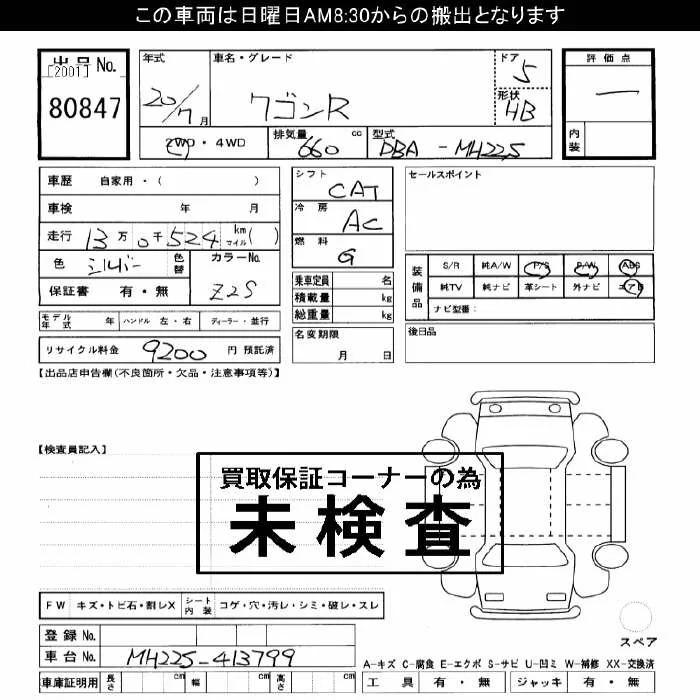 この車両は日曜日AM8:30からの搬出となります
出品 No.
[2001]
80847
年式
20/7月
車名・グレード
ワゴンR
ドア
5
形状
HB
評価点
内装
2WD・4WD
排気量
660 cc
型式
DBA-MH22S
車歴 自家用・( )
車検 年 月
走行 13万0千524 km マイル( )
色
シルバー
色替
カラーNo.
Z2S
保証書 有・無
シフト
CAT
冷房
AC
燃料
G
セールスポイント
乗車定員 名
積載量 kg
総重量 kg
装備品
S/R 純A/W P/S P/W ABS
純TV 純ナビ 革シート 外ナビ エアB
ナビ型番:
モデル年式 年 ハンドル 左・右 ディーラー・並行
名変期限
月 日
後日品
リサイクル料金 9200 円 預託済
【出品店申告欄(不良箇所・欠品・注意事項等)】
【検査員記入】
買取保証コーナーの為
未検査
FW キズ・トビ石・割レX シート内装 コゲ・穴・汚レ・シミ・破レ・スレ
登録 No.
車台 No. MH22S-413799
スペア
A-キズ C-腐食 E-エクボ S-サビ U-凹ミ W-補修 XX-交換済
車庫証明用 長さ cm 幅 cm 高さ cm
工具 有・無 ジャッキ 有・無